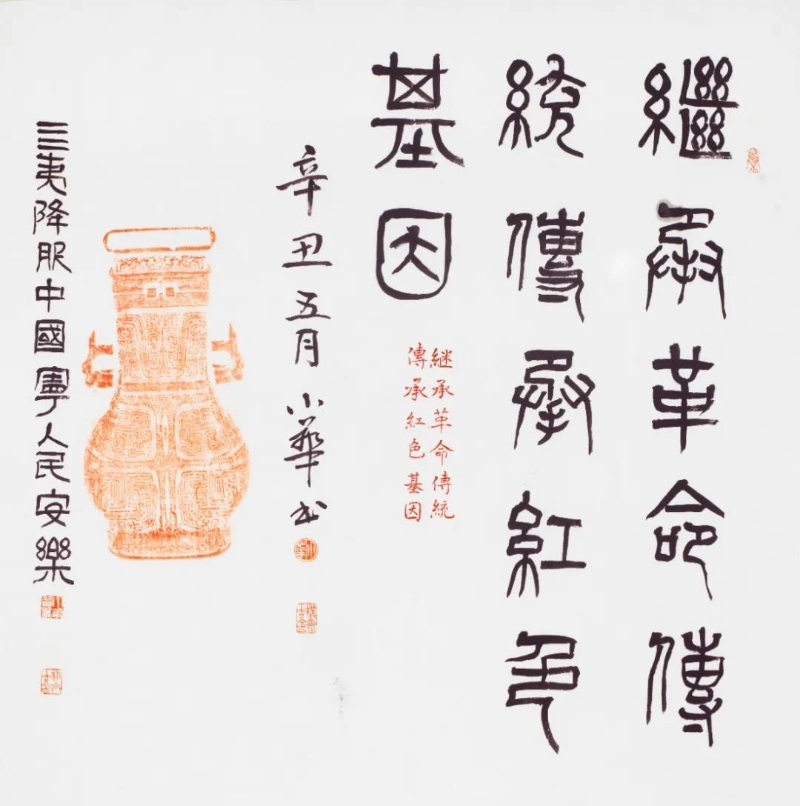 繼承革命傳
統傳承紅色
基因
继承革命傳統
傳承紅色基因
辛丑五月小華书
三夷降服中國寧人民安樂